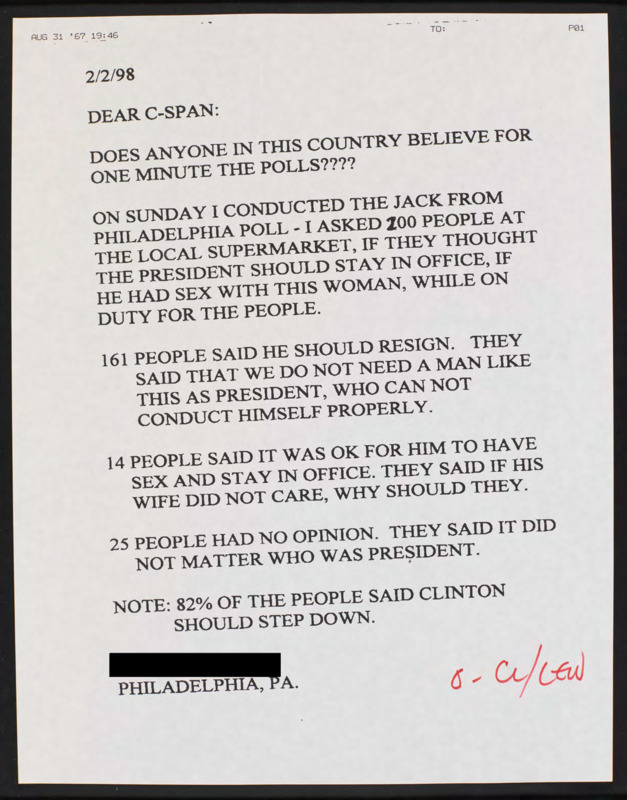 AUG 31 '67 19:46
TO:
P01
2/2/98
DEAR C-SPAN:
DOES ANYONE IN THIS COUNTRY BELIEVE FOR
ONE MINUTE THE POLLS????
ON SUNDAY I CONDUCTED THE JACK FROM
PHILADELPHIA POLL - I ASKED 200 PEOPLE AT
THE LOCAL SUPERMARKET, IF THEY THOUGHT
THE PRESIDENT SHOULD STAY IN OFFICE, IF
HE HAD SEX WITH THIS WOMAN, WHILE ON
DUTY FOR THE PEOPLE.
161 PEOPLE SAID HE SHOULD RESIGN. THEY
SAID THAT WE DO NOT NEED A MAN LIKE
THIS AS PRESIDENT, WHO CAN NOT
CONDUCT HIMSELF PROPERLY.
14 PEOPLE SAID IT WAS OK FOR HIM TO HAVE
SEX AND STAY IN OFFICE. THEY SAID IF HIS
WIFE DID NOT CARE, WHY SHOULD THEY.
25 PEOPLE HAD NO OPINION. THEY SAID IT DID
NOT MATTER WHO WAS PRESIDENT.
NOTE: 82% OF THE PEOPLE SAID CLINTON
SHOULD STEP DOWN.
PHILADELPHIA, PA.